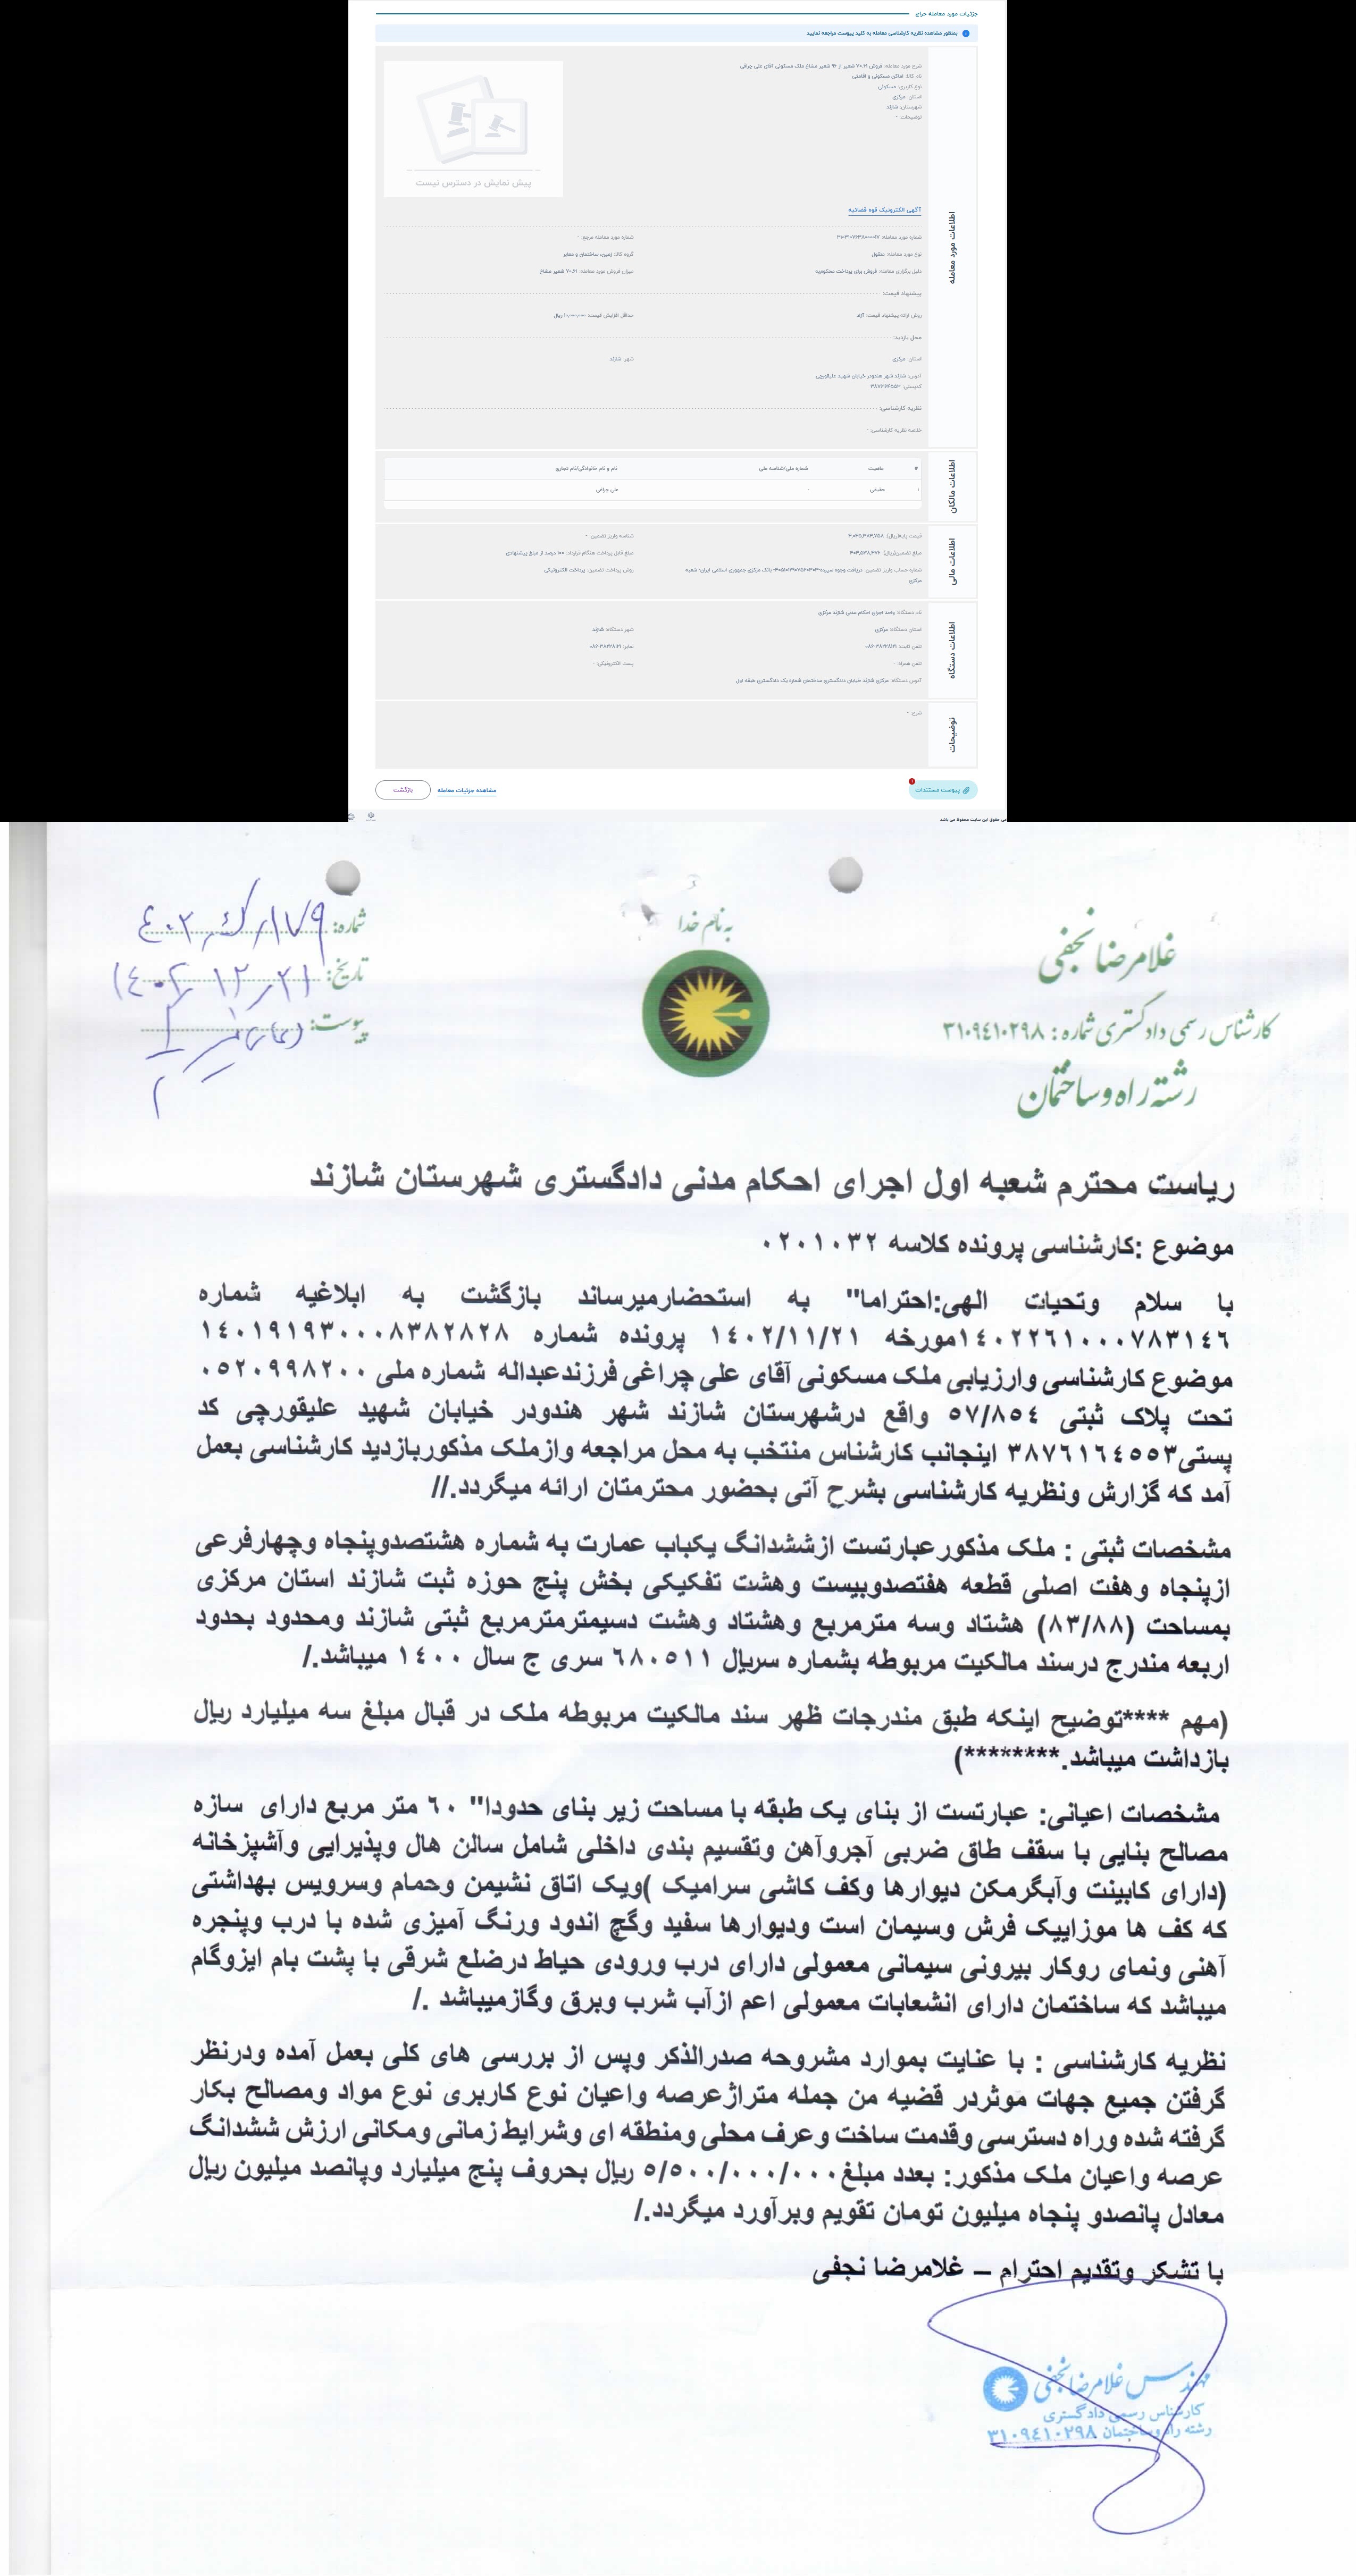 جزئیات مورد معامله حراج
بمنظور مشاهده نظریه کارشناسی معامله به کلید پیوست مراجعه نمایید
اطلاعات مورد معامله
شرح مورد معامله: فروش ۷۰.۶۱ شعیر از ۹۶ شعیر مشاع ملک مسکونی آقای علی چراقی
نام کالا: اماکن مسکونی و اقامتی
نوع کاربری: مسکونی
استان: مرکزی
شهرستان: شازند
توضیحات: -
پیش نمایش در دسترس نیست
آگهی الکترونیک قوه قضائیه
شماره مورد معامله مرجع: -
نوع مورد معامله: منقول
گروه کالا: زمین، ساختمان و معابر
دلیل برگزاری معامله: فروش برای پرداخت محکوم‌به
میزان فروش مورد معامله: ۷۰.۶۱ شعیر مشاع
پیشنهاد قیمت:
روش ارائه پیشنهاد قیمت: آزاد
حداقل افزایش قیمت: ۱۰,۰۰۰,۰۰۰ ریال
محل بازدید:
استان: مرکزی
شهر: شازند
آدرس: شازند شهر هندودر خیابان شهید علیقورچی
کدپستی: ۳۸۷۶۱۶۴۵۵۳
نظریه کارشناسی:
خلاصه نظریه کارشناسی: -
اطلاعات مالکان
# ماهیت شماره ملی/شناسه ملی نام و نام خانوادگی/نام تجاری
۱ حقیقی - علی چراغی
اطلاعات مالی
قیمت پایه(ریال): ۴,۰۴۵,۳۸۴,۷۵۸
شناسه واریز تضمین: -
مبلغ تضمین(ریال): ۴۰۴,۵۳۸,۴۷۶
مبلغ قابل پرداخت هنگام قرارداد: ۱۰۰ درصد از مبلغ پیشنهادی
روش پرداخت تضمین: پرداخت الکترونیکی
اطلاعات دستگاه
نام دستگاه: واحد اجرای احکام مدنی شازند مرکزی
استان دستگاه: مرکزی
شهر دستگاه: شازند
تلفن همراه: -
پست الکترونیکی: -
آدرس دستگاه: مرکزی شازند خیابان دادگستری ساختمان شماره یک دادگستری طبقه اول
توضیحات
شرح: -
پیوست مستندات
۱
مشاهده جزئیات معامله
بازگشت
به نام خدا
غلامرضا نجفی
کارشناس رسمی دادگستری شماره : ۳۱۰۹٤۱۰۲۹۸
رشته راه و ساختمان
شماره: ۱۷۹/ک/٤۰۲
تاریخ: ۱٤۰۲/۱۲/۲۱
پیوست:
ریاست محترم شعبه اول اجرای احکام مدنی دادگستری شهرستان شازند
موضوع :کارشناسی پرونده کلاسه ۰۲۰۱۰۳۲
با سلام وتحیات الهی:احتراما" به استحضارمیرساند بازگشت به ابلاغیه شماره
۱٤۰۲۲٦۱۰۰۰۷۸۳۱٤٦مورخه ۱٤۰۲/۱۱/۲۱ پرونده شماره ۱٤۰۱۹۱۹۳۰۰۰۸۳۸۲۸۲۸
موضوع کارشناسی وارزیابی ملک مسکونی آقای علی چراغی فرزندعبداله شماره ملی ۰۵۲۰۹۹۸۲۰۰
تحت پلاک ثبتی ۵۷/۸۵٤ واقع درشهرستان شازند شهر هندودر خیابان شهید علیقورچی کد
پستی۳۸۷٦۱٦٤۵۵۳ اینجانب کارشناس منتخب به محل مراجعه وازملک مذکوربازدید کارشناسی بعمل
آمد که گزارش ونظریه کارشناسی بشرح آتی بحضور محترمتان ارائه میگردد.//
مشخصات ثبتی : ملک مذکورعبارتست ازششدانگ یکباب عمارت به شماره هشتصدوپنجاه وچهارفرعی
ازپنجاه وهفت اصلی قطعه هفتصدوبیست وهشت تفکیکی بخش پنج حوزه ثبت شازند استان مرکزی
بمساحت (۸۳/۸۸) هشتاد وسه مترمربع وهشتاد وهشت دسیمترمترمربع ثبتی شازند ومحدود بحدود
اربعه مندرج درسند مالکیت مربوطه بشماره سریال ٦۸۰۵۱۱ سری ج سال ۱٤۰۰ میباشد./
(مهم ****توضیح اینکه طبق مندرجات ظهر سند مالکیت مربوطه ملک در قبال مبلغ سه میلیارد ریال
بازداشت میباشد.********)
مشخصات اعیانی: عبارتست از بنای یک طبقه با مساحت زیر بنای حدودا" ٦۰ متر مربع دارای سازه
مصالح بنایی با سقف طاق ضربی آجروآهن وتقسیم بندی داخلی شامل سالن هال وپذیرایی وآشپزخانه
(دارای کابینت وآبگرمکن دیوارها وکف کاشی سرامیک )ویک اتاق نشیمن وحمام وسرویس بهداشتی
که کف ها موزاییک فرش وسیمان است ودیوارها سفید وگچ اندود ورنگ آمیزی شده با درب وپنجره
آهنی ونمای روکار بیرونی سیمانی معمولی دارای درب ورودی حیاط درضلع شرقی با پشت بام ایزوگام
میباشد که ساختمان دارای انشعابات معمولی اعم ازآب شرب وبرق وگازمیباشد ./
نظریه کارشناسی : با عنایت بموارد مشروحه صدرالذکر وپس از بررسی های کلی بعمل آمده ودرنظر
گرفتن جمیع جهات موثردر قضیه من جمله متراژعرصه واعیان نوع کاربری نوع مواد ومصالح بکار
گرفته شده وراه دسترسی وقدمت ساخت وعرف محلی ومنطقه ای وشرایط زمانی ومکانی ارزش ششدانگ
عرصه واعیان ملک مذکور: بعدد مبلغ۵/۵۰۰/۰۰۰/۰۰۰ ریال بحروف پنج میلیارد وپانصد میلیون ریال
معادل پانصدو پنجاه میلیون تومان تقویم وبرآورد میگردد./
با تشکر وتقدیم احترام – غلامرضا نجفی
مهندس غلامرضا نجفی
کارشناس رسمی دادگستری
رشته راه وساختمان ۳۱۰۹٤۱۰۲۹۸